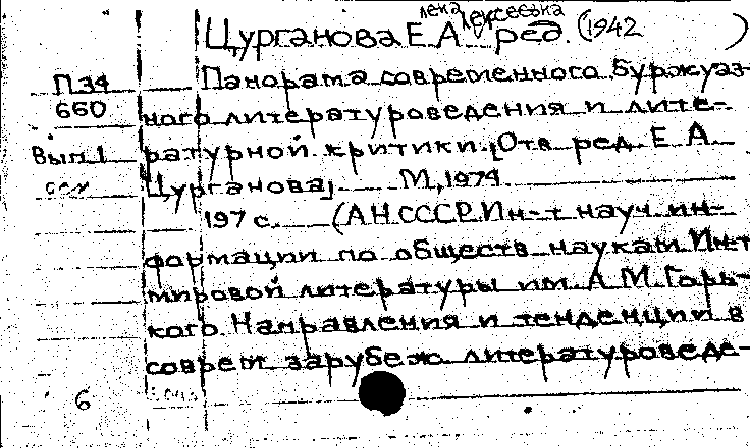 лена лексеевна
Цурганова Е А ред. (1942 )
П34 Панорама современного буржуаз-
660 ного литературоведения и лите-
Вып. 1 ратурной критики. [Отв ред. Е А
Цурганова]. М, 1974.
197 с. (АН СССР. Ин-т науч ин-
формации по обществ наукам Ин-т
мировой литературы им А М. Горь-
кого. Направления и тенденции в
соврем зарубеж литературоведе-
6